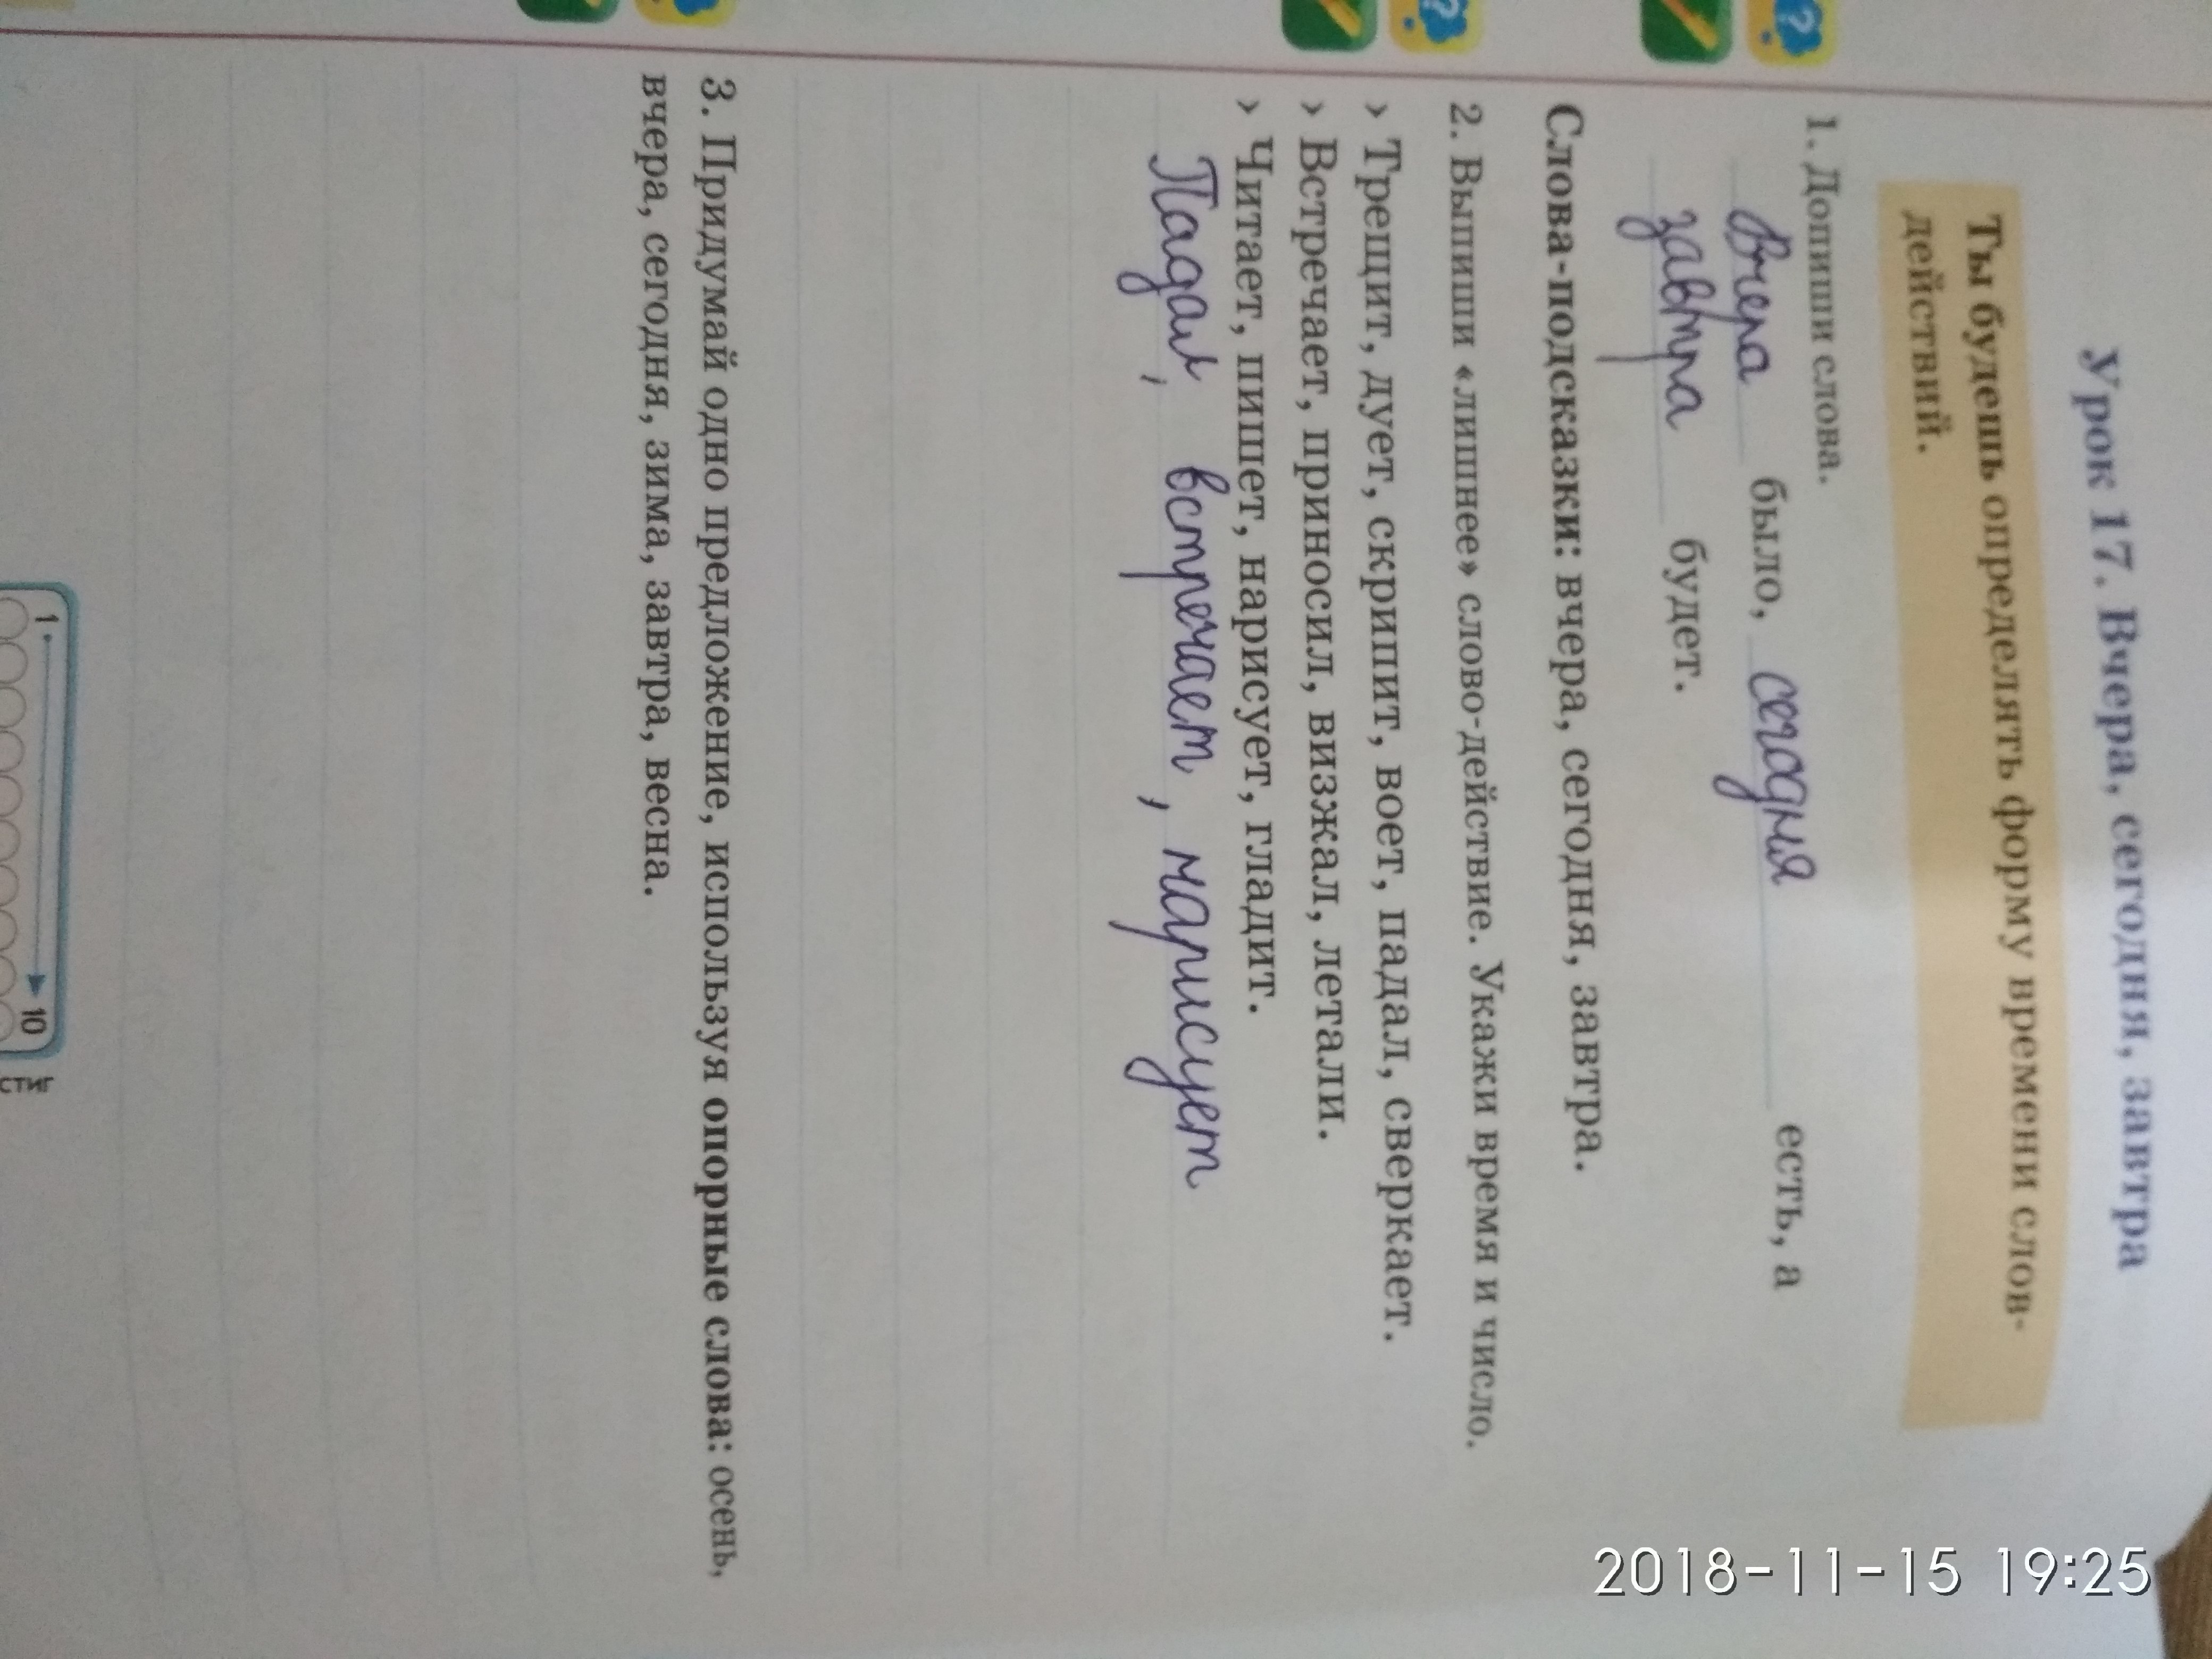 Урок 17. Вчера, сегодня, завтра
Ты будешь определять форму времени слов-
действий.
1. Допиши слова.
Вчера было, сегодня есть, а
завтра будет.
Слова-подсказки: вчера, сегодня, завтра.
2. Выпиши «лишнее» слово-действие. Укажи время и число.
› Трещит, дует, скрипит, воет, падал, сверкает.
› Встречает, приносил, визжал, летали.
› Читает, пишет, нарисует, гладит.
Падал, встречает, нарисует
3. Придумай одно предложение, используя опорные слова: осень,
вчера, сегодня, зима, завтра, весна.
1 10
2018-11-15 19:25